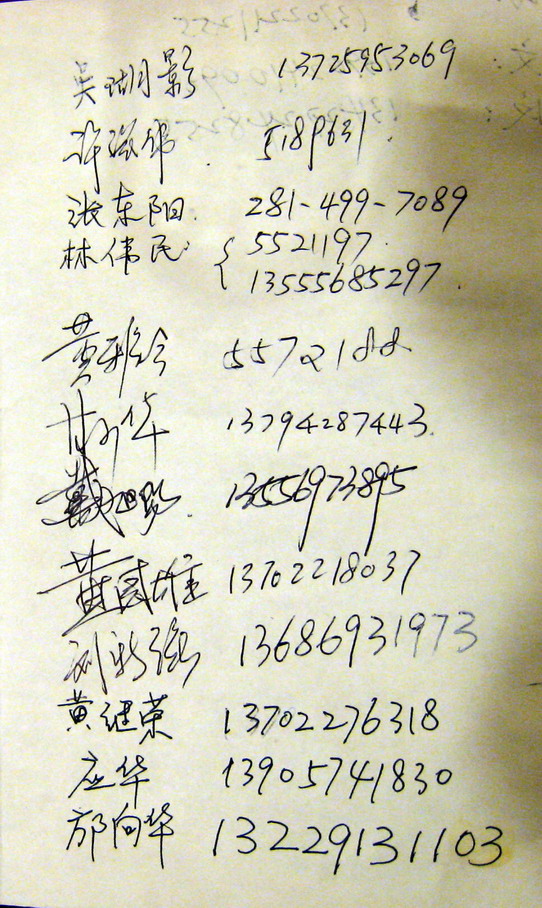 吴瑚月影 13725953069
许强伟 5189631
张东阳 281-499-7089
林伟民 5521197
13555685297
黄雅玲 5572188
甘小华 13794287443
戴 13556973895
黄国雄 13702218037
刘新强 13686931973
黄继荣 13702276318
应华 13905741830
邝向华 13229131103